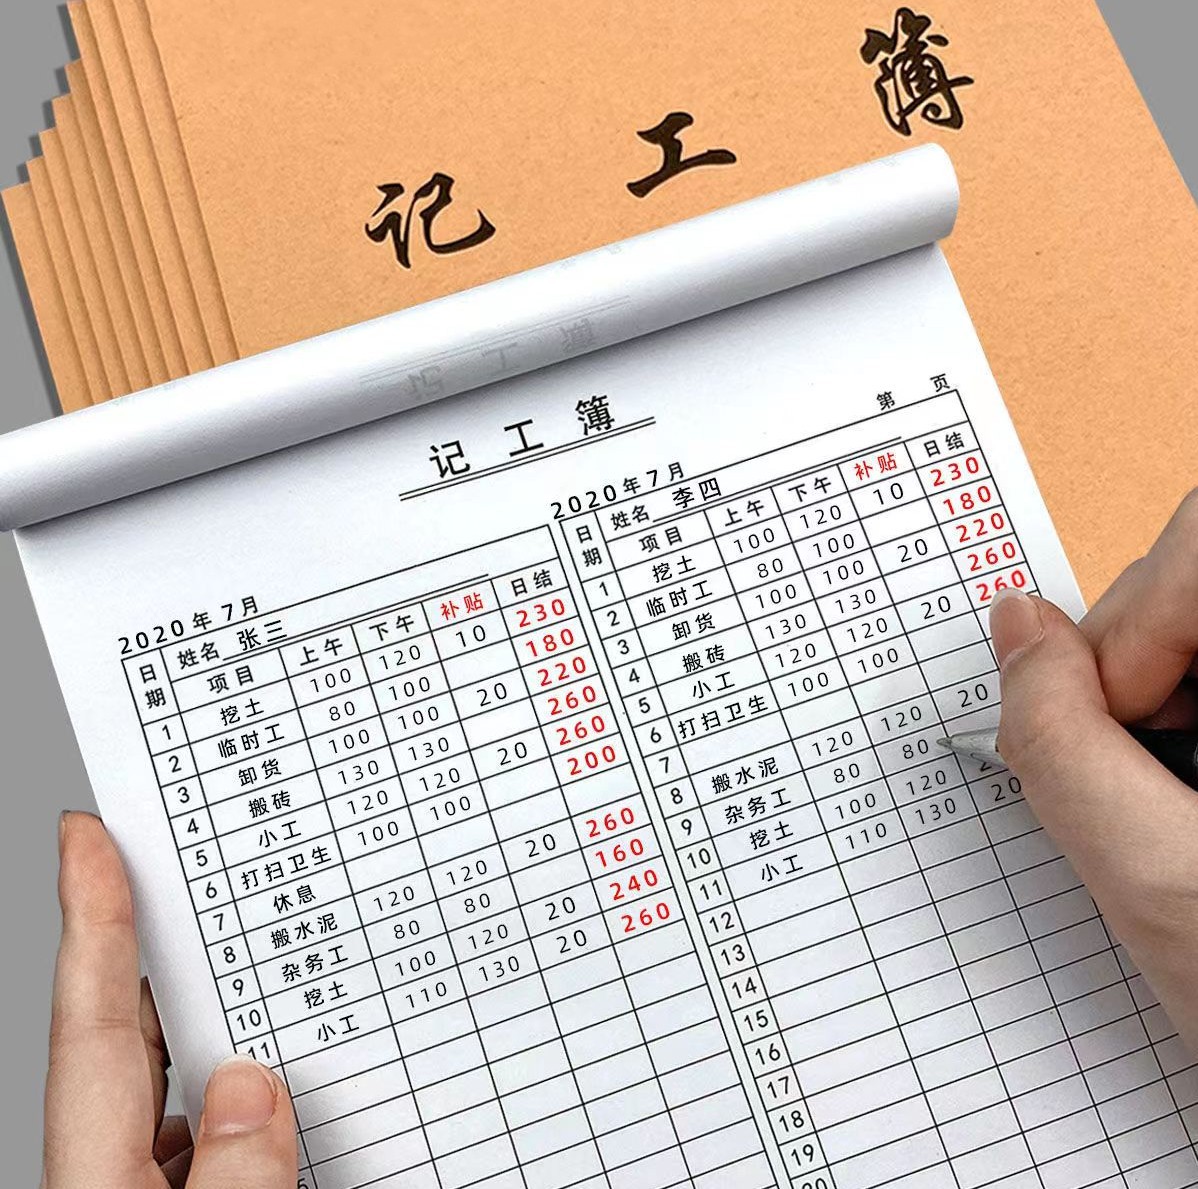 记工簿
记工簿
第 页
2020年7月
姓名 张三
日期 项目 上午 下午 补贴 日结
1 挖土 100 120 10 230
2 临时工 80 100 180
3 卸货 100 100 20 220
4 搬砖 130 130 260
5 小工 120 120 20 260
6 打扫卫生 100 100 200
7 休息
8 搬水泥 120 120 20 260
9 杂务工 80 80 160
10 挖土 100 120 20 240
11 小工 110 130 20 260
2020年7月
姓名 李四
日期 项目 上午 下午 补贴 日结
1 挖土 100 120 10 230
2 临时工 80 100 180
3 卸货 100 100 20 220
4 搬砖 130 130 260
5 小工 120 120 20 260
6 打扫卫生 100 100
7
8 搬水泥 120 120 20
9 杂务工 80 80
10 挖土 100 120
11 小工 110 130 20
12
13
14
15
16
17
18
19
20